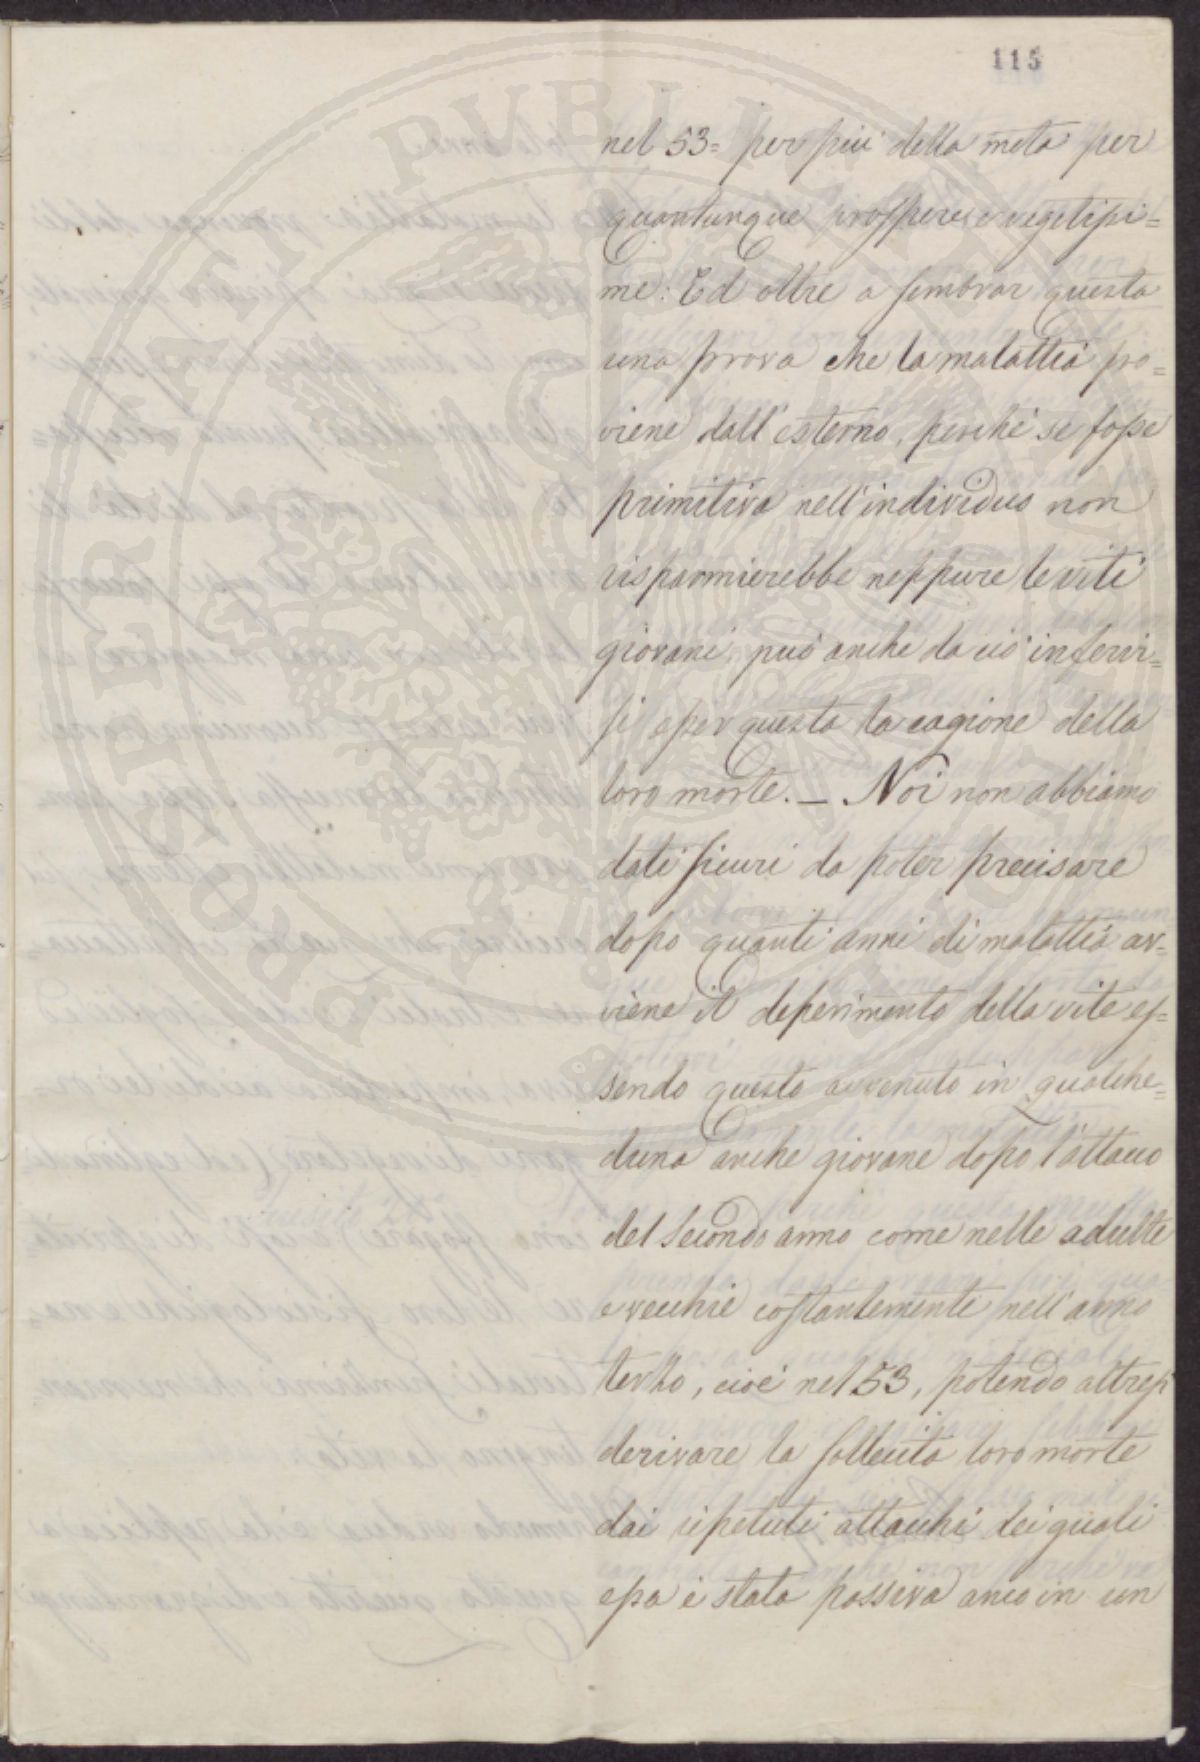 115
nel 53= per più della metà per
quantunque prospere e vegetissi=
me: Ed oltre a sembrar questa
una prova che la malattia pro=
viene dall'esterno, perchè se fosse
primitiva nell'individuo non
risparmierebbe neppure le viti
giovani, può anche da ciò inferir=
si esser questa la cagione della
loro morte. — Noi non abbiamo
dati sicuri da poter precisare
dopo quanti anni di malattia av=
viene il deperimento della vite es=
sendo questo avvenuto in qualche=
duna anche giovane dopo l'attacco
del secondo anno come nelle adulte
e vecchie costantemente nell'anno
terzo, cioè nel 53, potendo altresì
derivare la sollecita loro morte
dai ripetuti attacchi dei quali
essa è stata passiva anco in un
PROSPERITATI PUBLICAE